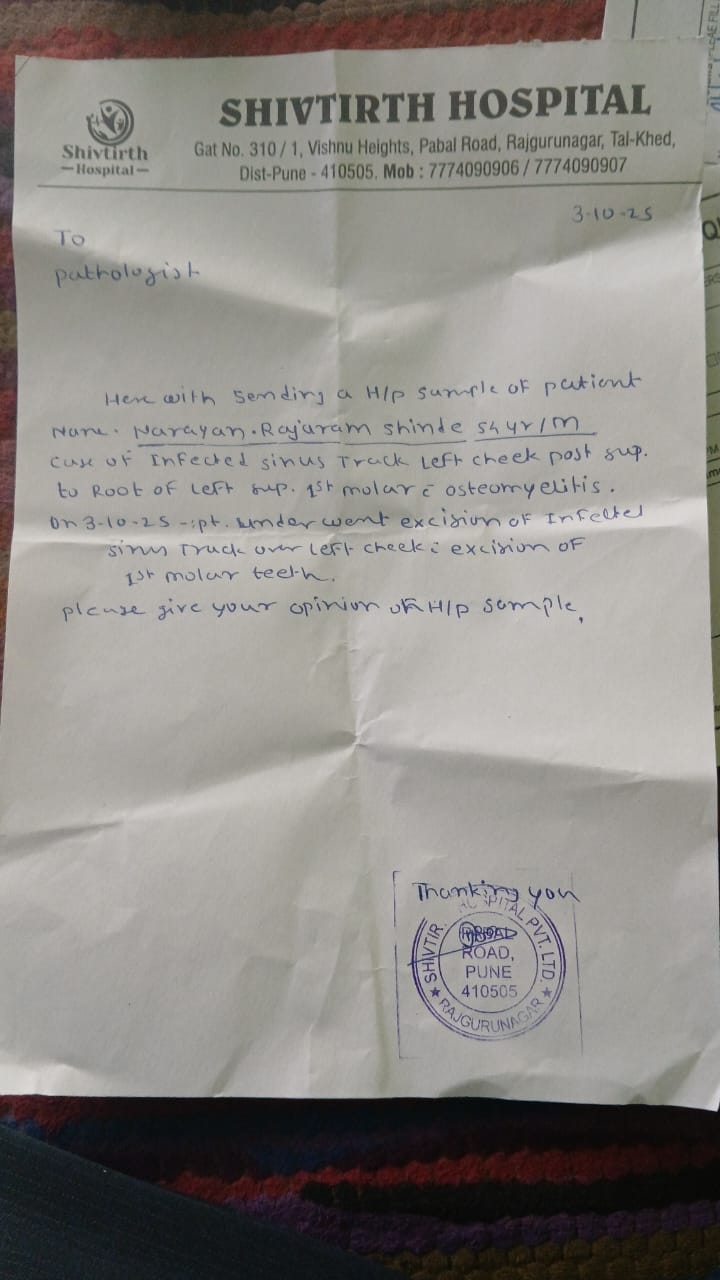 Shivtirth
Hospital
SHIVTIRTH HOSPITAL
Gat No. 310 / 1, Vishnu Heights, Pabal Road, Rajgurunagar, Tal-Khed,
Dist-Pune - 410505. Mob : 7774090906 / 7774090907
3-10-25
To
pathologist
Here with sending a H/p sample of patient
Name. Narayan. Rajaram shinde 54yr/M
case of Infected sinus Track Left cheek post sup.
to Root of Left sup. 1st molar c̄ osteomyelitis.
on 3-10-25 -:pt. underwent excision of Infected
sinus Track over Left cheek c̄ excision of
1st molar teeth.
please give your opinion on H/p sample.
Thanking you
SHIVTIR HOSPITAL PVT. LTD.
ROAD,
PUNE
410505
★ RAJGURUNAGAR ★